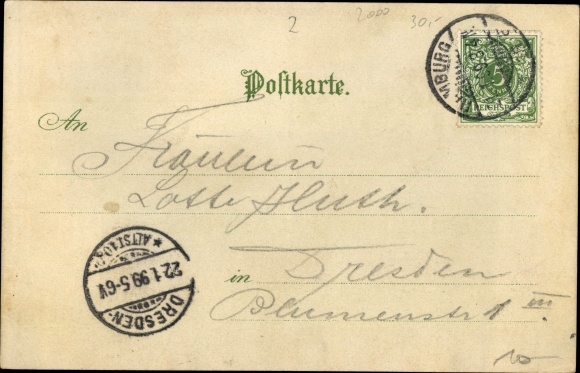 2 2000 30,-
MBURG
5
REICHSPOST
Postkarte.
An
Fräulein
Lotte Hluth.
in Dresden
Blumenstr 1 III.
DRESDEN-
22.1.99.5-6V
* ALTST.10.
10